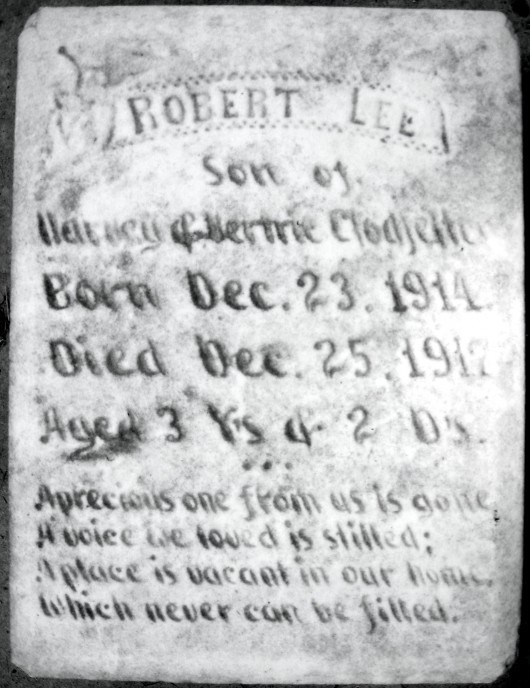 ROBERT LEE
Son of
Harvey & Bertie Clodfelter
Born Dec. 23. 1914.
Died Dec. 25. 1917
Aged 3 Ys & 2 Ds.
A precious one from us is gone
A voice we loved is stilled;
A place is vacant in our home,
Which never can be filled.